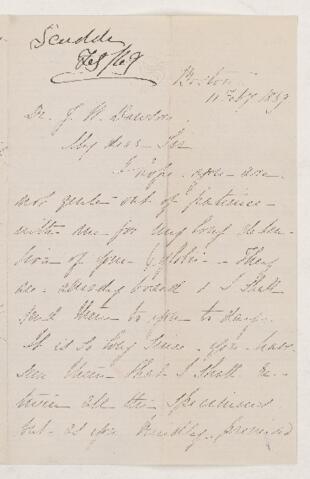 Scudder
Feb 11/69
Boston
11 Feby 1869
Dr. J. W. Dawson
My dear Sir
I hope you are
not quite out of patience
with me for my long deten-
tion of your fossils. They
are already boxed & I shall
send them to you to day.
It is so long since you have
seen them that I shall re-
turn all the specimens
but as you kindly promised